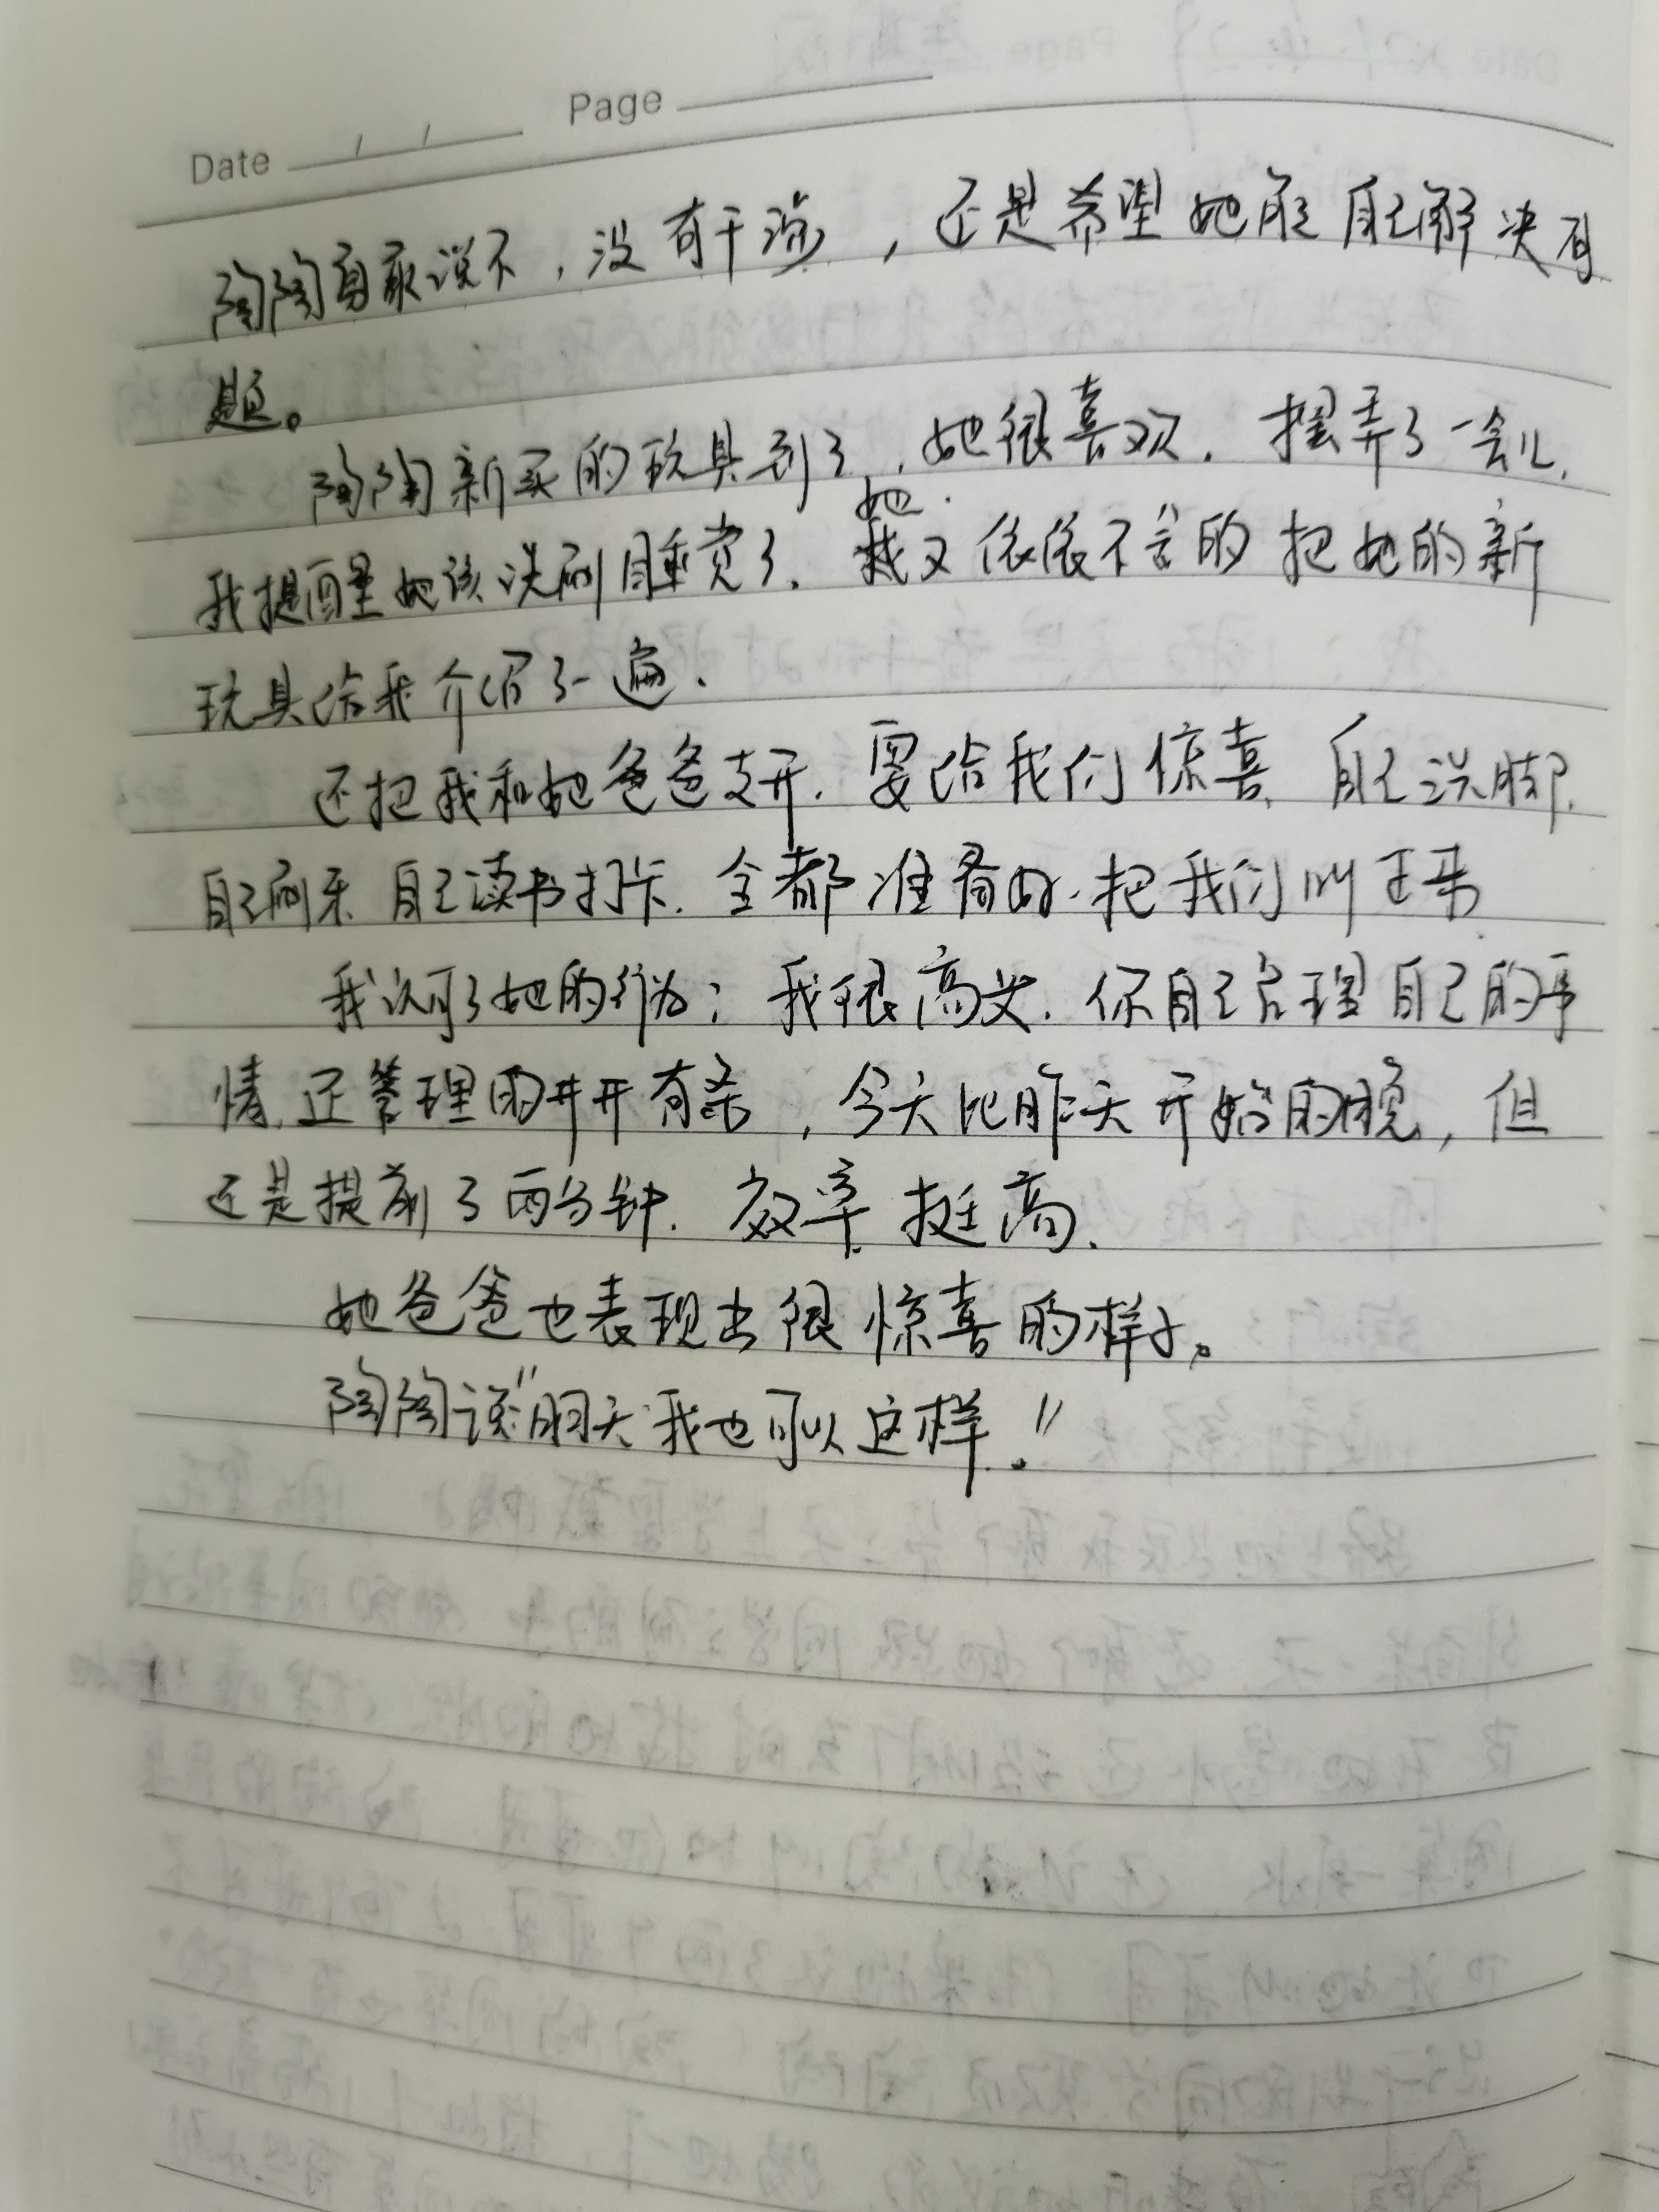 Date / / Page
陶陶勇敢说不,没有干涉,还是希望她能自己解决问
题。
陶陶新买的玩具到了,她很喜欢.摆弄了一会儿,
我提醒她该洗刷睡觉了.她又依依不舍的把她的新
玩具给我介绍了一遍.
还把我和她爸爸支开.要给我们惊喜.自己洗脚.
自己刷牙.自己读书打卡.全都准备好.把我们叫过来.
我认可了她的行为:我很高兴.你自己管理自己的事
情.还管理的井井有条,今天比昨天开始的晚,但
还是提前了两分钟.效率挺高.
她爸爸也表现出很惊喜的样子。
陶陶说“明天我也可以这样!”